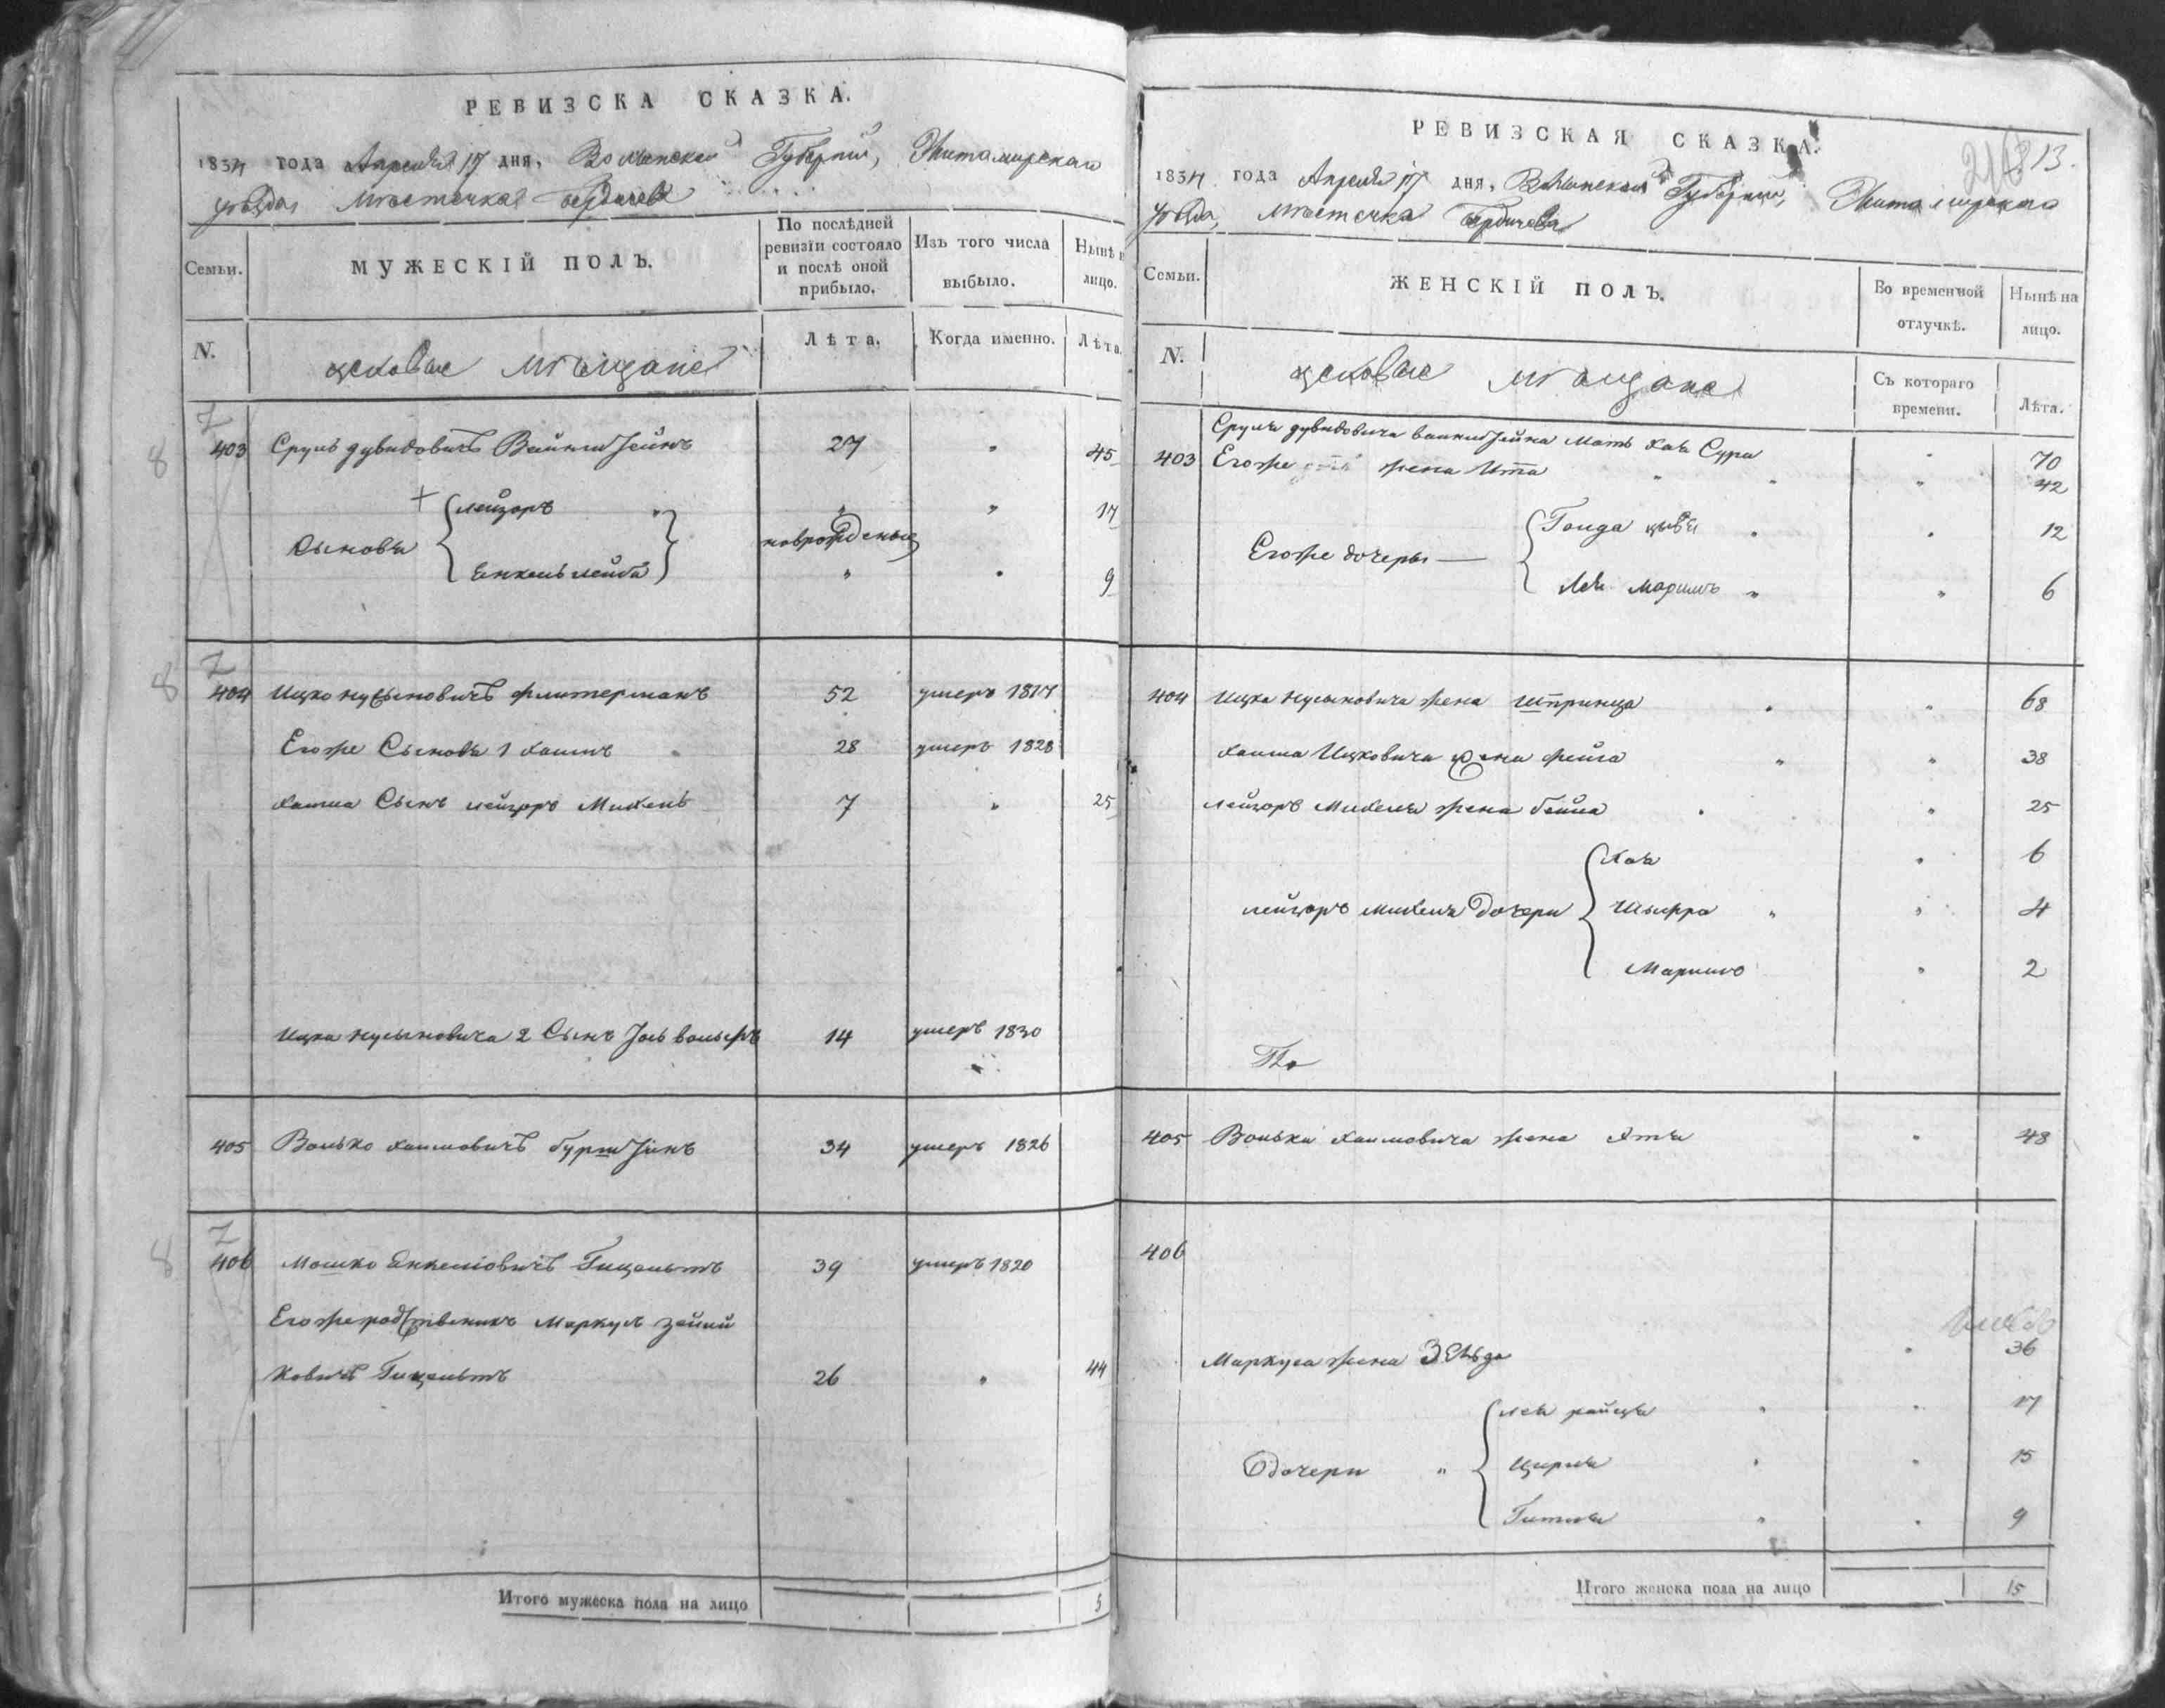 РЕВИЗСКА СКАЗКА.
1834 года Апреля 17 дня, Волынской Губернии, Житомирскаго
уѣзда, мѣстечка Бердичева
Семьи.
МУЖЕСКІЙ ПОЛЪ.
По послѣдней ревизіи состояло и послѣ оной прибыло.
Изъ того числа выбыло.
Нынѣ лицо.
N.
мѣщане
Лѣта.
Когда именно.
Лѣта.
403 Сруль дувидовичъ 27 " 45
+ лейзоръ " " " 17
Сыновья новрожденые
Енкель лейба " " 9
404 Ицко нусыновичъ флитерманъ 52 умеръ 1817
Егоже Сыновья 1 хаимъ " 28 умеръ 1828
хаима Сынъ лейзоръ Михель 7 " 25
Ицка нусыновича 2 Сынъ 14 умеръ 1830
405 Волько хаимовичъ 34 умеръ 1826
7
406 Мошко Енкелювичъ Гицельтъ 39 умеръ 1820
Егоже родственикъ Маркусъ
Гицельтъ 26 " 44
Итого мужеска пола на лицо 3
РЕВИЗСКАЯ СКАЗКА.
213.
1834 года Апреля 17 дня, Волынской Губернии, Житомирскаго
уѣзда, мѣстечка Бердичева
Семьи.
ЖЕНСКІЙ ПОЛЪ.
Во временной отлучкѣ.
Нынѣ на лицо.
N.
мѣщане
Съ котораго времени.
Лѣта.
Сруля дувидовича Мать хая Сура " 70
403 Егоже жена Ита " " " 42
Голда цывья " " 12
Егоже дочеры
Лея Маримъ " " 6
404 Ицка нусыновича жена Штринца " " 68
хаима Ицковича жена фейга " " 38
лейзоръ Михеля жена бейла " " 25
хая " 6
лейзоръ михеля дочери " " 4
Маримъ " 2
405 Волька хаимовича жена " 48
406
Маркуса жена Зельда " 36
лея " " 17
дочери " Цирля " " 15
Гитля " " 9
Итого женска пола на лицо 15